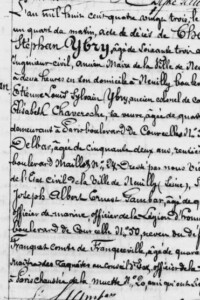 L'an mil huit cent quatre vingt treize, le
un quart du matin, acte de décès de
Stéphan Ybry, âgé de soixante trois an
Ingénieur Civil, Ancien Maire de la Ville de Neu
à deux heures en son domicile à Neuilly, boule
Etienne Louis Sylvain Ybry ancien colonel de ca
Elisabeth Chaveroche, sa veuve, âgée de quar
demeurant à Paris boulevard de Courcelles N°
Delbar, âgé de cinquante deux ans, rentier
boulevard Maillot N° 28. Dont par nous d
de l'Etat Civil de la Ville de Neuilly (Seine),
Joseph Albert Ernest Lambar, âgé de qu
officier de marine officier de la Légion d'honn
boulevard de Courcelles N° 50, neveu du dé
Franquet Comte de Franqueville, âgé de quara
Maître des Requêtes au Conseil d'Etat, officier de
à Paris chaussée de la muette N° Les quels ont sig